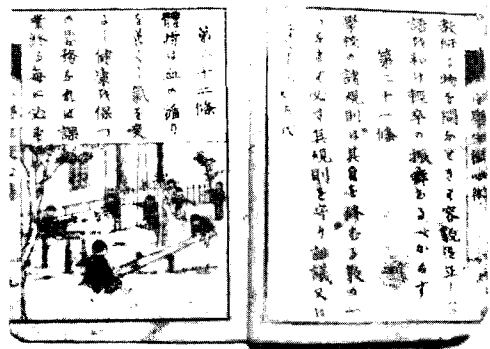 教師に物を問ふときは容貌を正し
語を和け軽卒の振舞あるべからす
第二十一條
學校の諸規則は其身を修むる教の一
つなれば必す其規則を守り論議又は
第二十二條
體操は血の循り
を善くし氣を爽
健康を保つ
の要務なれば課
業終る毎に必す